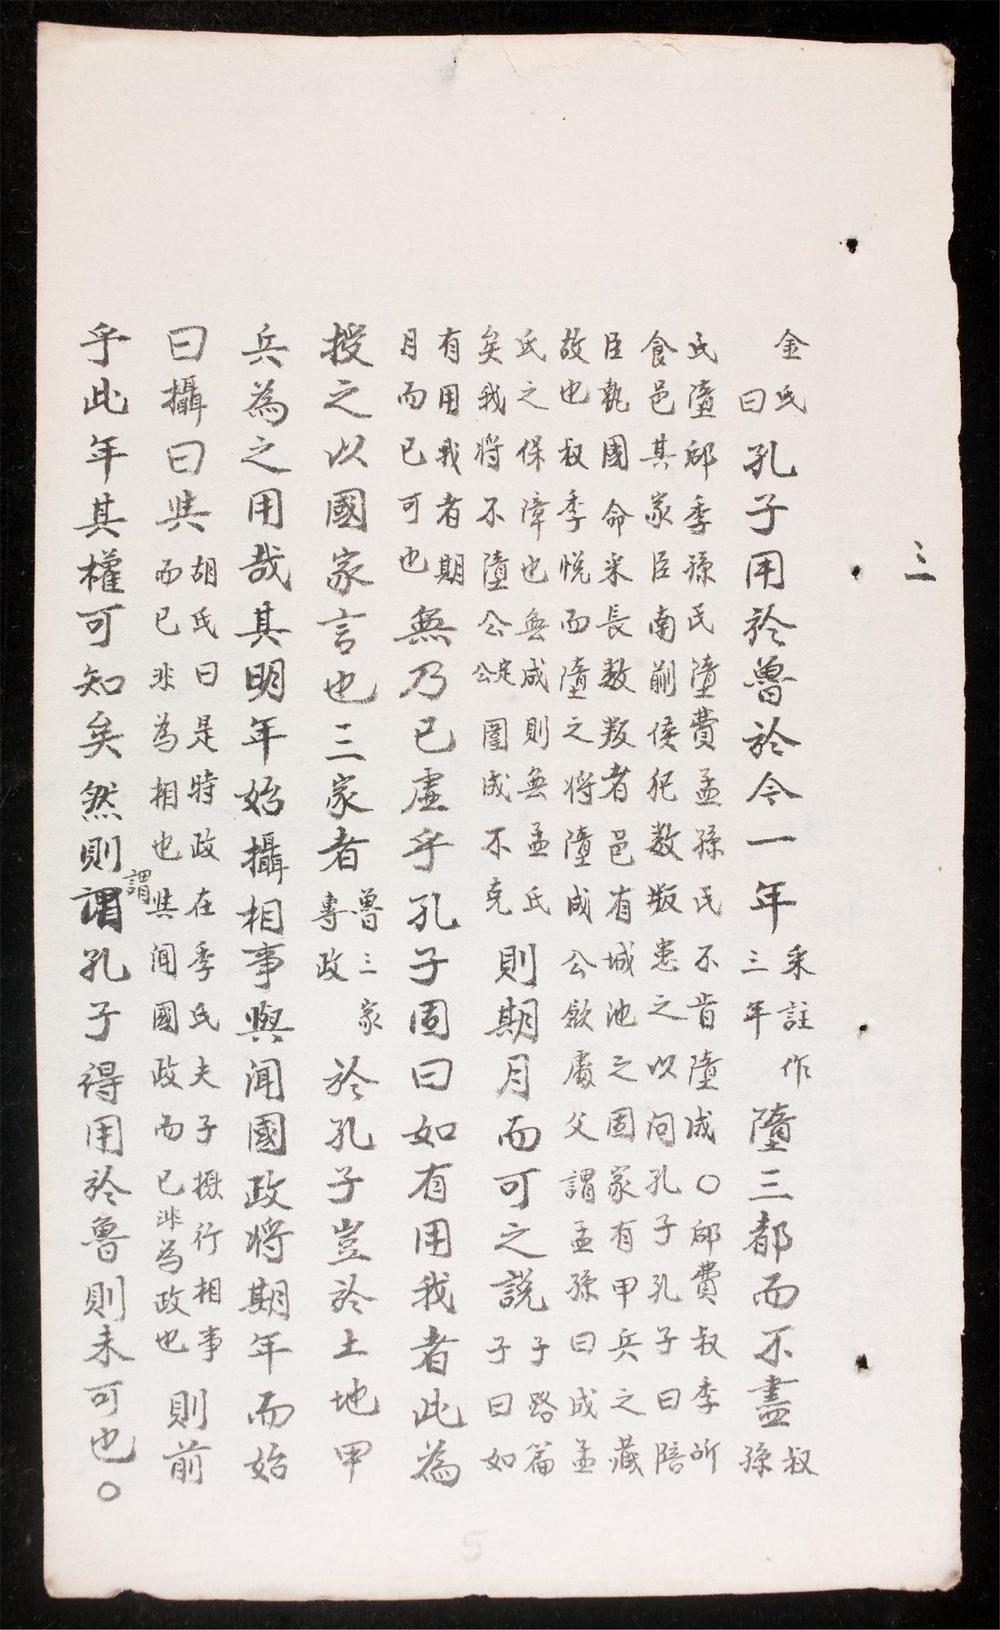 三
金氏曰孔子用於魯於今一年采註作三年墮三都而不盡叔孫
氏墮郈季孫氏墮費孟孫氏不肯墮成○郈費叔季所
食邑其家臣南蒯侯犯數叛患之以問孔子孔子曰陪
臣執國命采長數叛者邑有城池之固家有甲兵之藏
故也叔季悅而墮之將墮成公歛處父謂孟孫曰成孟
氏之保障也無成則無孟氏
矣我將不墮公定公圍成不克則期月而可之説子路篇子曰如
有用我者期月而已可也無乃已虛乎孔子固曰如有用我者此為
授之以國家言也三家者魯三家專政於孔子豈於土地甲
兵為之用哉其明年始攝相事與闻國政將期年而始
曰攝曰與胡氏曰是時政在季氏夫子攝行相事而已非為相也與闻國政而已非為政也則前
乎此年其權可知矣然則謂孔子得用於魯則未可也○
謂
5